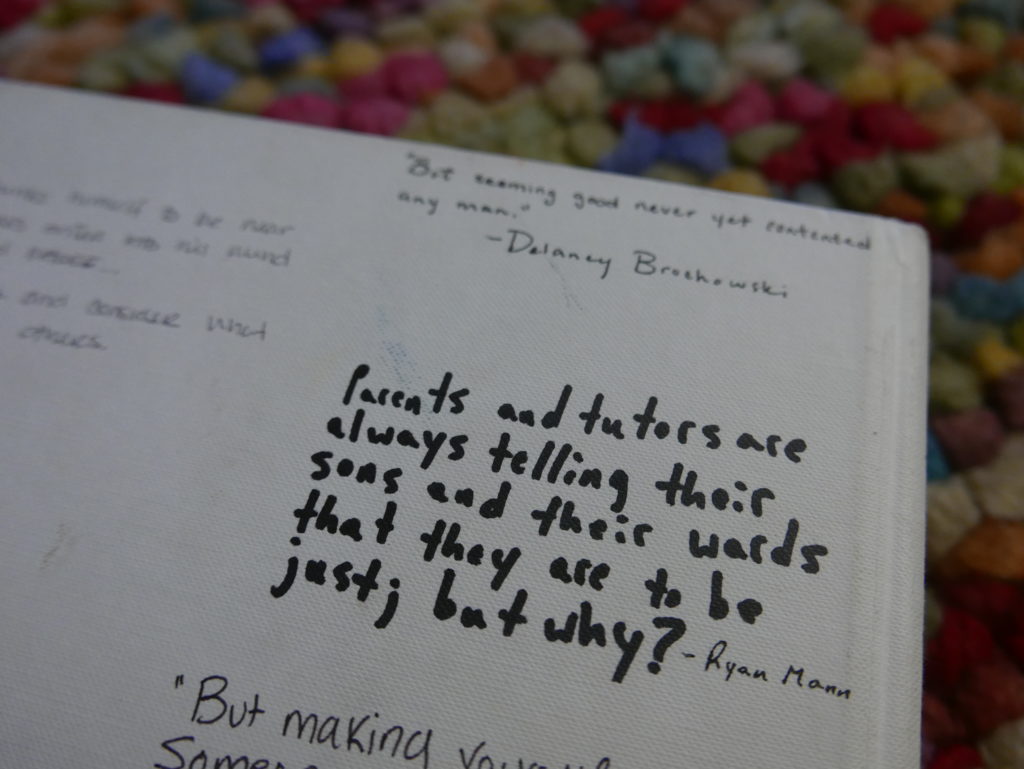 "But seeming good never yet contented
any man."
-Delaney Brochowski
himself to be near
into his mind
and consider what
others
Parents and tutors are
always telling their
sons and their wards
that they are to be
just; but why? - Ryan Mann
"But making